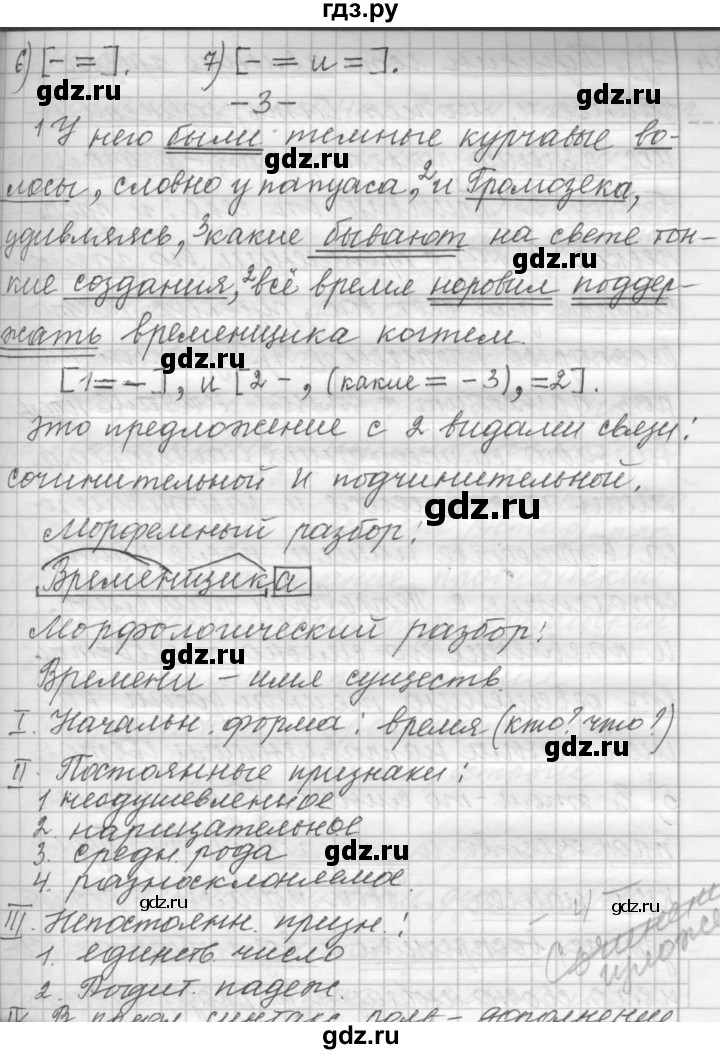 гдз.ру
6) [- =]. 7) [- = и =].
gdz.ru gdz.ru
-3-
gdz.ru
¹У него были темные курчавые во-
лосы, словно у папуаса, ²и Громозека,
gdz.ru
удивляясь, ³какие бывают на свете тон-
gdz.ru
кие создания, ²всё время норовил поддер-
жать временщика когтем.
gdz.ru
[1= -], и [2 -, (какие = -3), =2].
Это предложение с 2 видами связи:
сочинительной и подчинительной.
gdz.ru
Морфемный разбор:
Временщика
Морфологический разбор:
gdz.ru
Времени - имя существ.
I. Начальн. форма: время (кто? что?)
gdz.ru
II. Постоянные признаки:
1 неодушевленное
2. нарицательное
3. средн. рода
gdz.ru
4. разносклоняемое.
gdz.ru gdz.ru
III. Непостоянн. призн.:
1. единств. число
2. Родит. падеж.
gdz.ru
IV. В предл. синтакс. роль - дополнение
gdz.ru